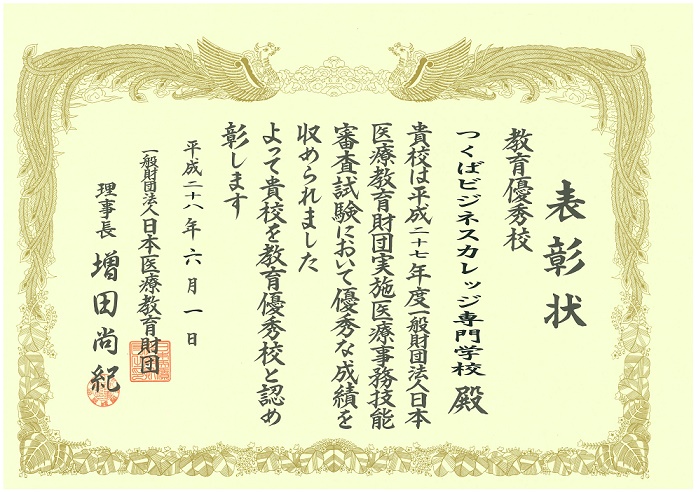 表彰状
教育優秀校
つくばビジネスカレッジ専門学校 殿
貴校は平成二十七年度一般財団法人日本
医療教育財団実施医療事務技能
審査試験において優秀な成績を
収められました
よって貴校を教育優秀校と認め
彰します
平成二十八年六月一日
一般財団法人日本医療教育財団
理事長 増田尚紀